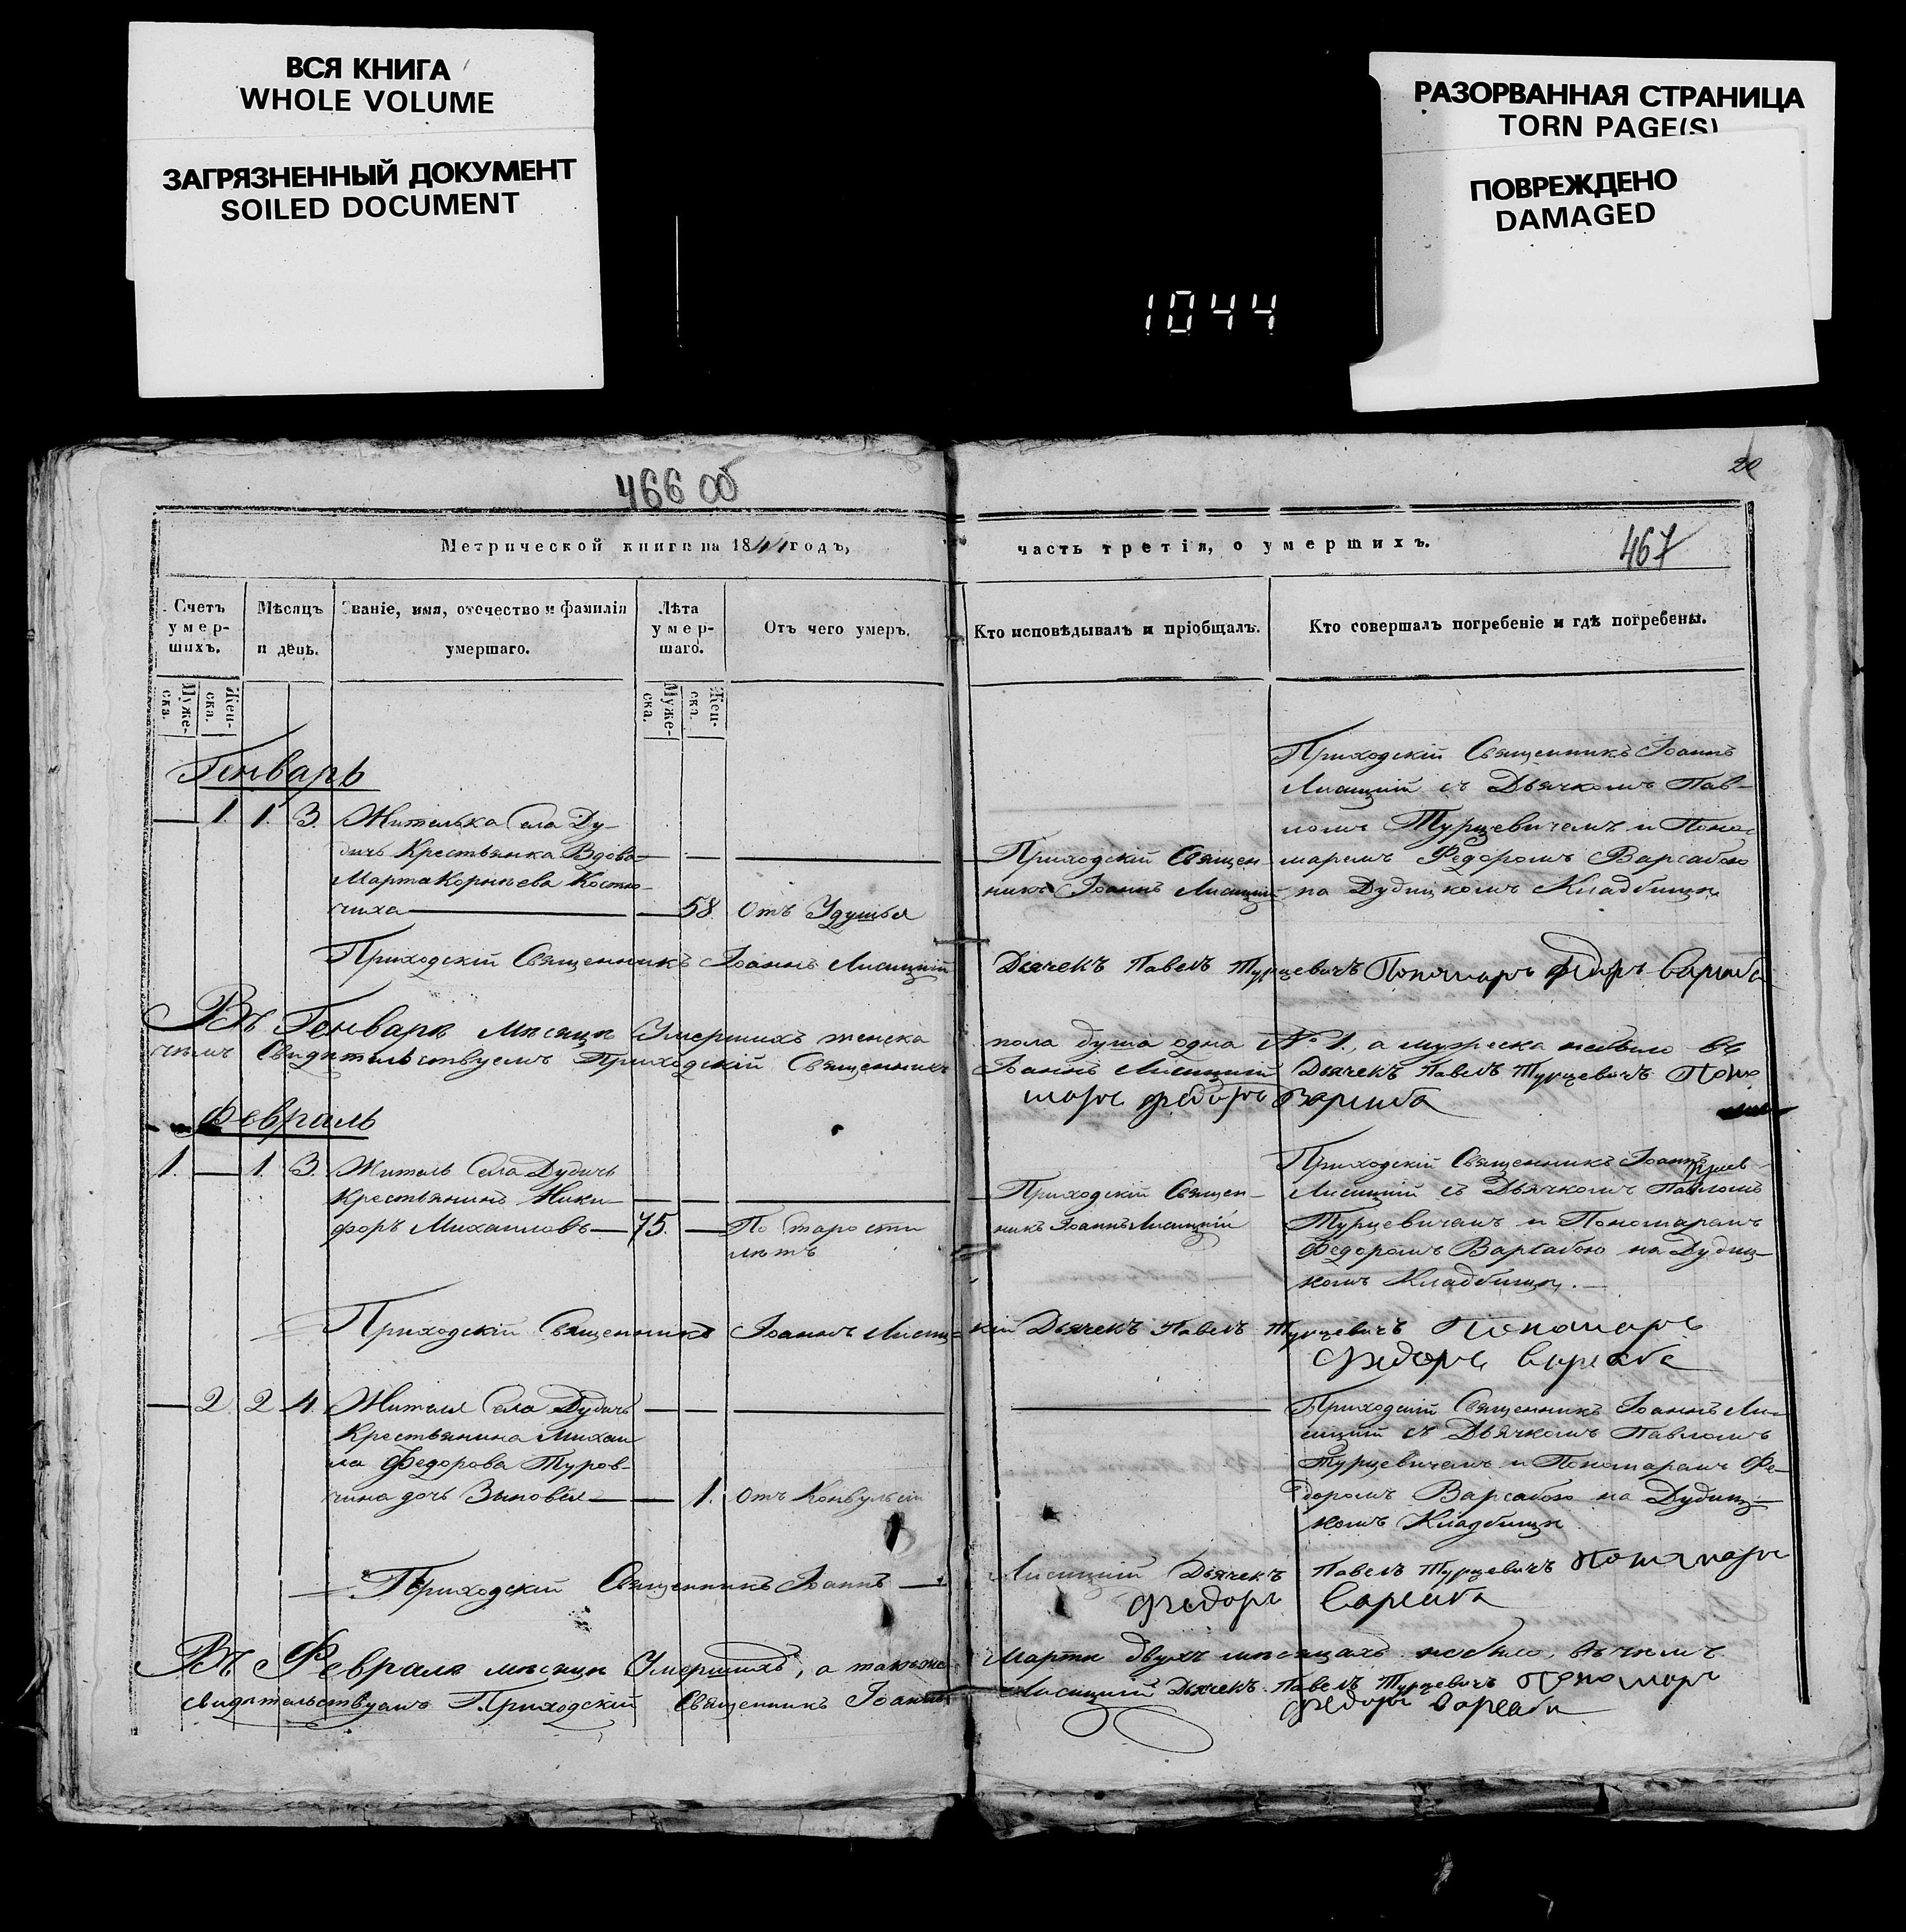 ВСЯ КНИГА
WHOLE VOLUME
ЗАГРЯЗНЕННЫЙ ДОКУМЕНТ
SOILED DOCUMENT
РАЗОРВАННАЯ СТРАНИЦА
TORN PAGE(S)
ПОВРЕЖДЕНО
DAMAGED
1044
466 об
20
Метрической книги на 1844 годъ,
часть третія, о умершихъ.
467
Счетъ умер-шихъ.
Мѣсяцъ и день.
Званіе, имя, отечество и фамилія умершаго.
Лѣта умер-шаго.
Отъ чего умеръ.
Кто исповѣдывалъ и пріобщалъ.
Кто совершалъ погребеніе и гдѣ погребены.
Муже-ска.
Жен-ска.
Муже-ска.
Жен-ска.
Генварь
1. 1. 3. Жителька Села Ду-
дичъ Крестьянка Вдова
Марта Корнѣева Костю-
чиха 58 Отъ Удушья
Приходскій Священ-
никъ Іоаннъ Лисицкій
Приходскій Священникъ Іоаннъ
Лисицкій съ Дьячкомъ Пав-
ломъ Турцевичемъ и Поно-
маремъ Федоромъ Варсабою
на Дудицкомъ Кладбищѣ
Приходскій Священникъ Іоаннъ Лисицкій Дьячекъ Павелъ Турцевичъ Пономарь Федоръ Варсаба
Въ Генварѣ мѣсяцѣ Умершихъ женска пола душа одна № 1, а мужеска небыло въ
чемъ Свидѣтельствуемъ Приходскій Священникъ Іоаннъ Лисицкій Дьячекъ Павелъ Турцевичъ Поно
марь Федоръ Варсаба
Февраль
1. 1. 3. Житель Села Дудичъ
Крестьянинъ Ники-
форъ Михаиловъ 75. По старости
лѣтъ
Приходскій Священ-
никъ Іоаннъ Лисицкій
Приходскій Священникъ Іоаннъ
Лисицкій съ Дьячкомъ Павломъ
Турцевичемъ и Пономаремъ
Федоромъ Варсабою на Дудиц-
комъ Кладбищѣ.
Приходскій Священникъ Іоаннъ Лисиц-кій Дьячекъ Павелъ Турцевичъ Пономарь
Федоръ Варсаба
2. 2 4. Жителя Села Дудичъ
Крестьянина Михаи
ла Федорова Туров-
чина дочь Зыновія 1. Отъ Конвульсіи
Приходскій Священникъ Іоаннъ Ли-
сицкій съ Дьячкомъ Павломъ
Турцевичемъ и Пономаремъ Фе-
доромъ Варсабою на Дудиц-
комъ Кладбищѣ
Приходскій Священникъ Іоаннъ Лисицкій Дьячекъ Павелъ Турцевичъ Пономарь
Федоръ Варсаба
Въ Февралѣ мѣсяцѣ Умершихъ, а также Марта двухъ мѣсяцахъ небыло, въ чемъ
свидѣтельствуемъ Приходскій Священникъ Іоаннъ Лисицкій Дьячекъ Павелъ Турцевичъ Пономарь
Федоръ Варсаба